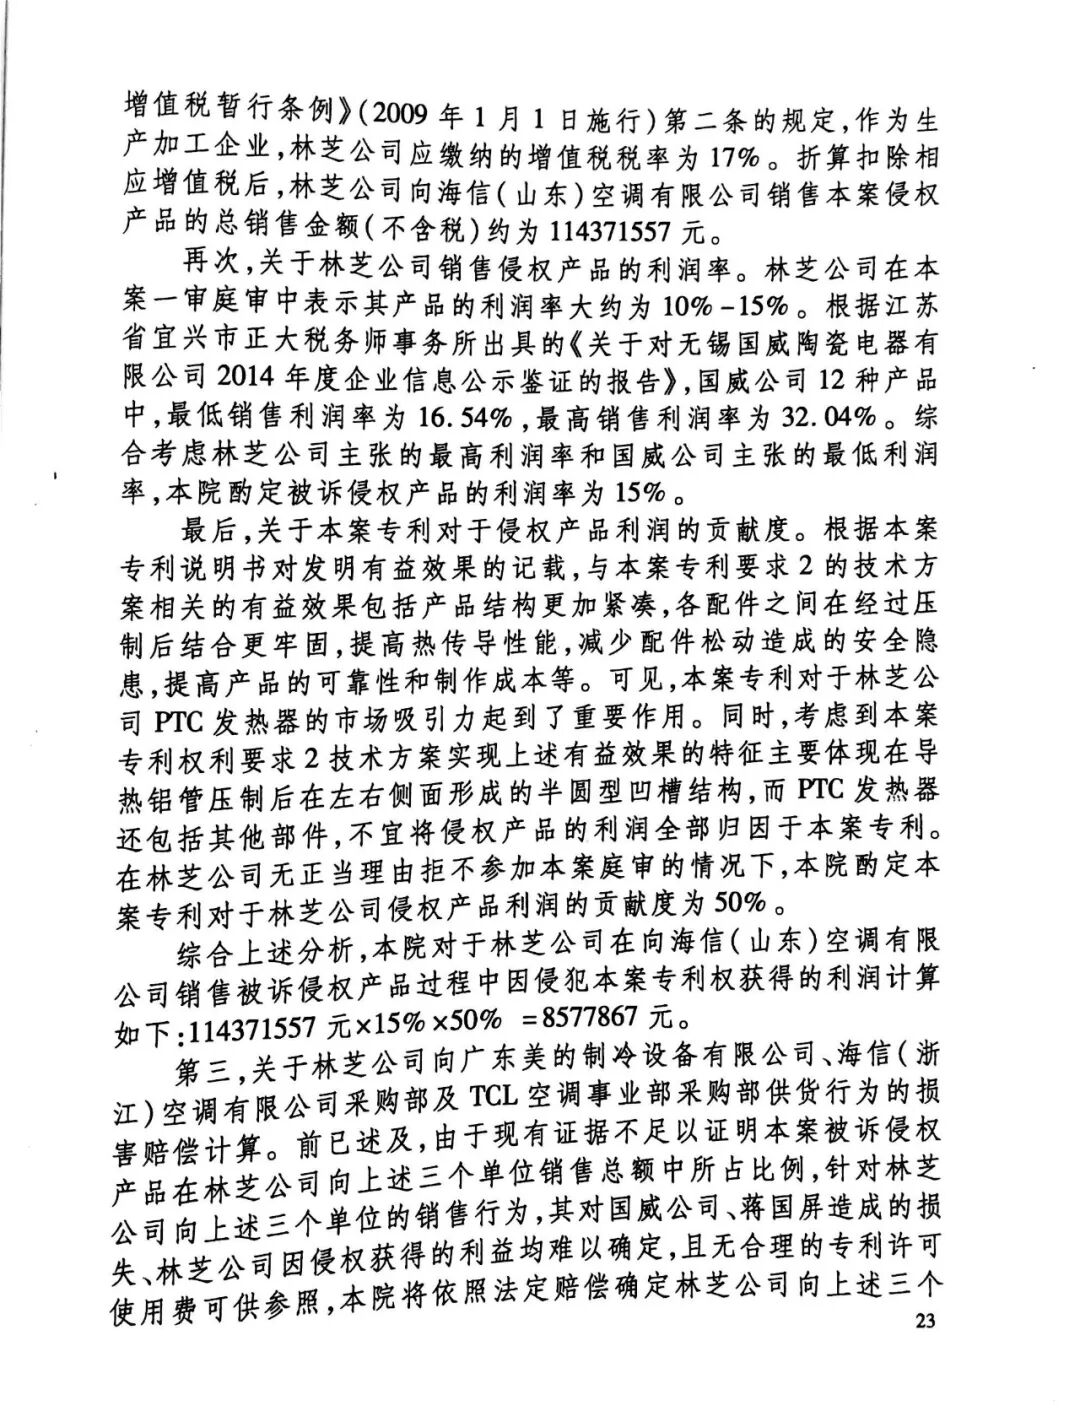 增值税暂行条例》(2009 年 1 月 1 日施行)第二条的规定,作为生
产加工企业,林芝公司应缴纳的增值税税率为 17%。折算扣除相
应增值税后,林芝公司向海信(山东)空调有限公司销售本案侵权
产品的总销售金额(不含税)约为 114371557 元。
再次,关于林芝公司销售侵权产品的利润率。林芝公司在本
案一审庭审中表示其产品的利润率大约为 10%-15%。根据江苏
省宜兴市正大税务师事务所出具的《关于对无锡国威陶瓷电器有
限公司 2014 年度企业信息公示鉴证的报告》,国威公司 12 种产品
中,最低销售利润率为 16.54%,最高销售利润率为 32.04%。综
合考虑林芝公司主张的最高利润率和国威公司主张的最低利润
率,本院酌定被诉侵权产品的利润率为 15%。
最后,关于本案专利对于侵权产品利润的贡献度。根据本案
专利说明书对发明有益效果的记载,与本案专利要求 2 的技术方
案相关的有益效果包括产品结构更加紧凑,各配件之间在经过压
制后结合更牢固,提高热传导性能,减少配件松动造成的安全隐
患,提高产品的可靠性和制作成本等。可见,本案专利对于林芝公
司 PTC 发热器的市场吸引力起到了重要作用。同时,考虑到本案
专利权利要求 2 技术方案实现上述有益效果的特征主要体现在导
热铝管压制后在左右侧面形成的半圆型凹槽结构,而 PTC 发热器
还包括其他部件,不宜将侵权产品的利润全部归因于本案专利。
在林芝公司无正当理由拒不参加本案庭审的情况下,本院酌定本
案专利对于林芝公司侵权产品利润的贡献度为 50%。
综合上述分析,本院对于林芝公司在向海信(山东)空调有限
公司销售被诉侵权产品过程中因侵犯本案专利权获得的利润计算
如下:114371557 元×15%×50% =8577867 元。
第三,关于林芝公司向广东美的制冷设备有限公司、海信(浙
江)空调有限公司采购部及 TCL 空调事业部采购部供货行为的损
害赔偿计算。前已述及,由于现有证据不足以证明本案被诉侵权
产品在林芝公司向上述三个单位销售总额中所占比例,针对林芝
公司向上述三个单位的销售行为,其对国威公司、蒋国屏造成的损
失、林芝公司因侵权获得的利益均难以确定,且无合理的专利许可
使用费可供参照,本院将依照法定赔偿确定林芝公司向上述三个
23